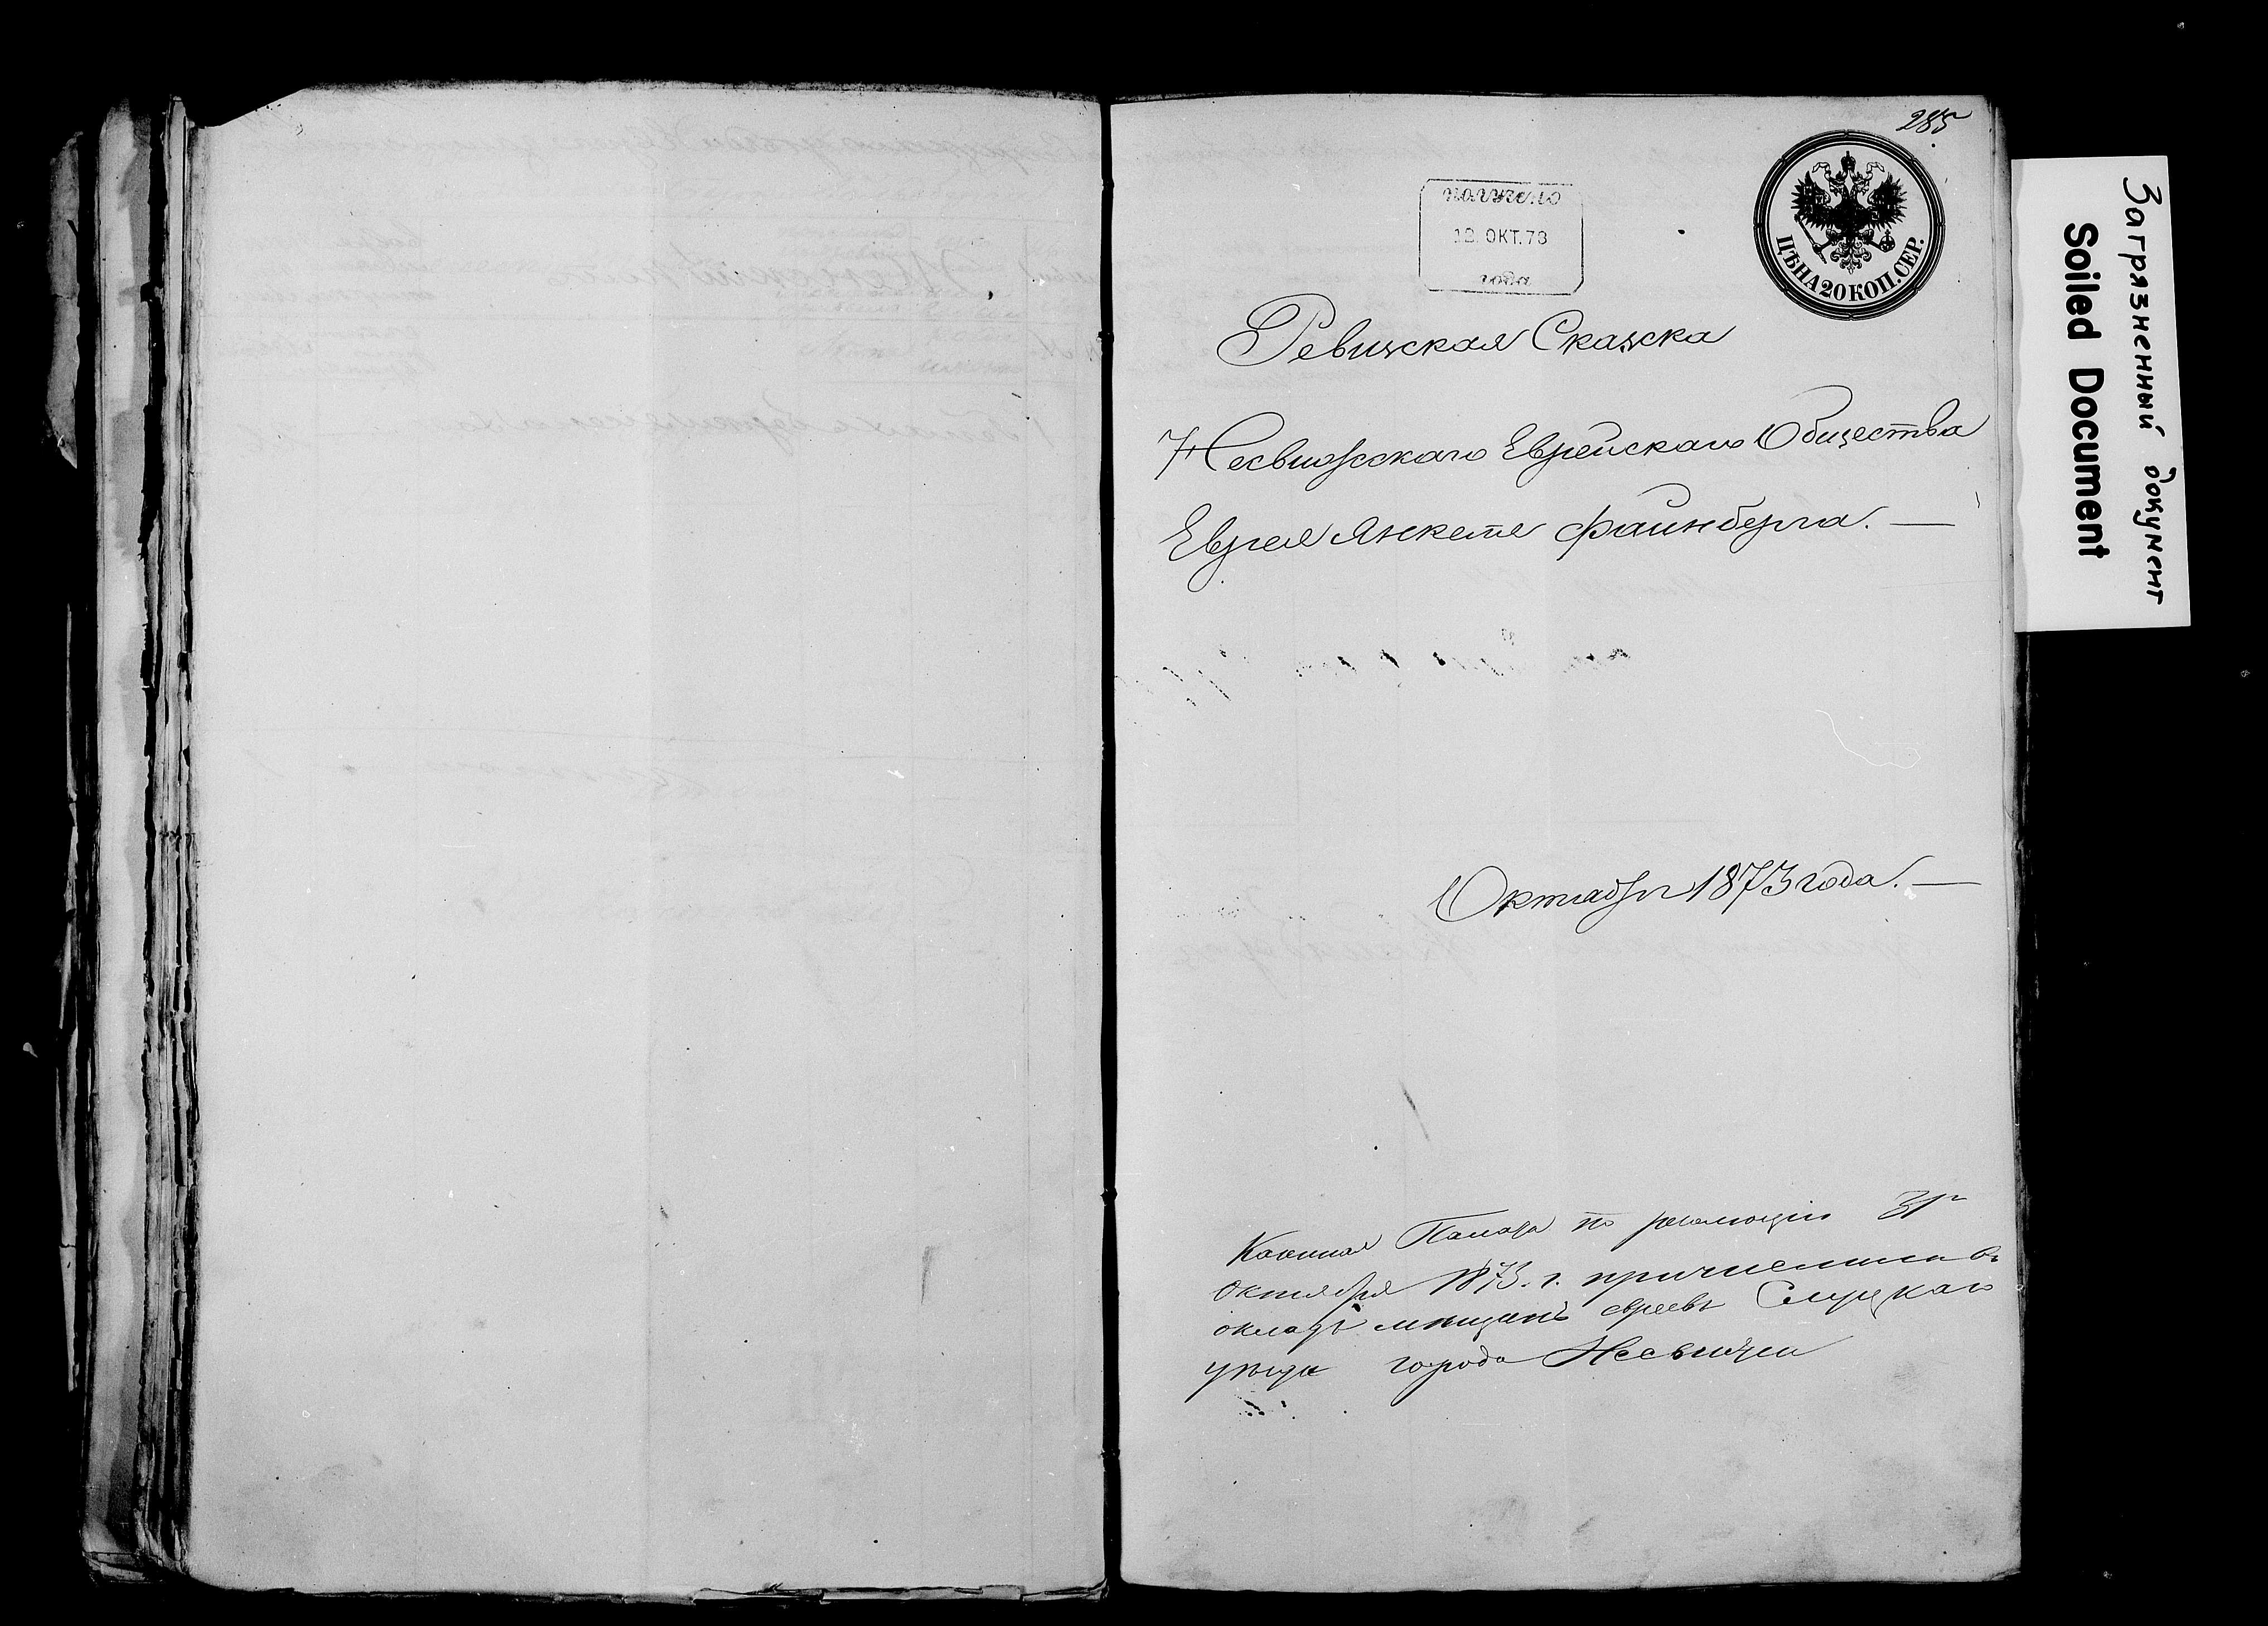 285
получено
12 ОКТ. 73
года
ЦѢНА 20 КОП. СЕР.
Ревизская Сказска
Несвижскаго Еврейскаго Общества
Еврея Янкеля Файнберга. —
Октября 1873 года. —
Казенная Палата по резолюціи 31го
Октября 1873. г. причислила въ
окладъ мѣщанъ евреевъ Слуцкаго
уѣзда города Несвижа
Загрязненный документ
Soiled Document